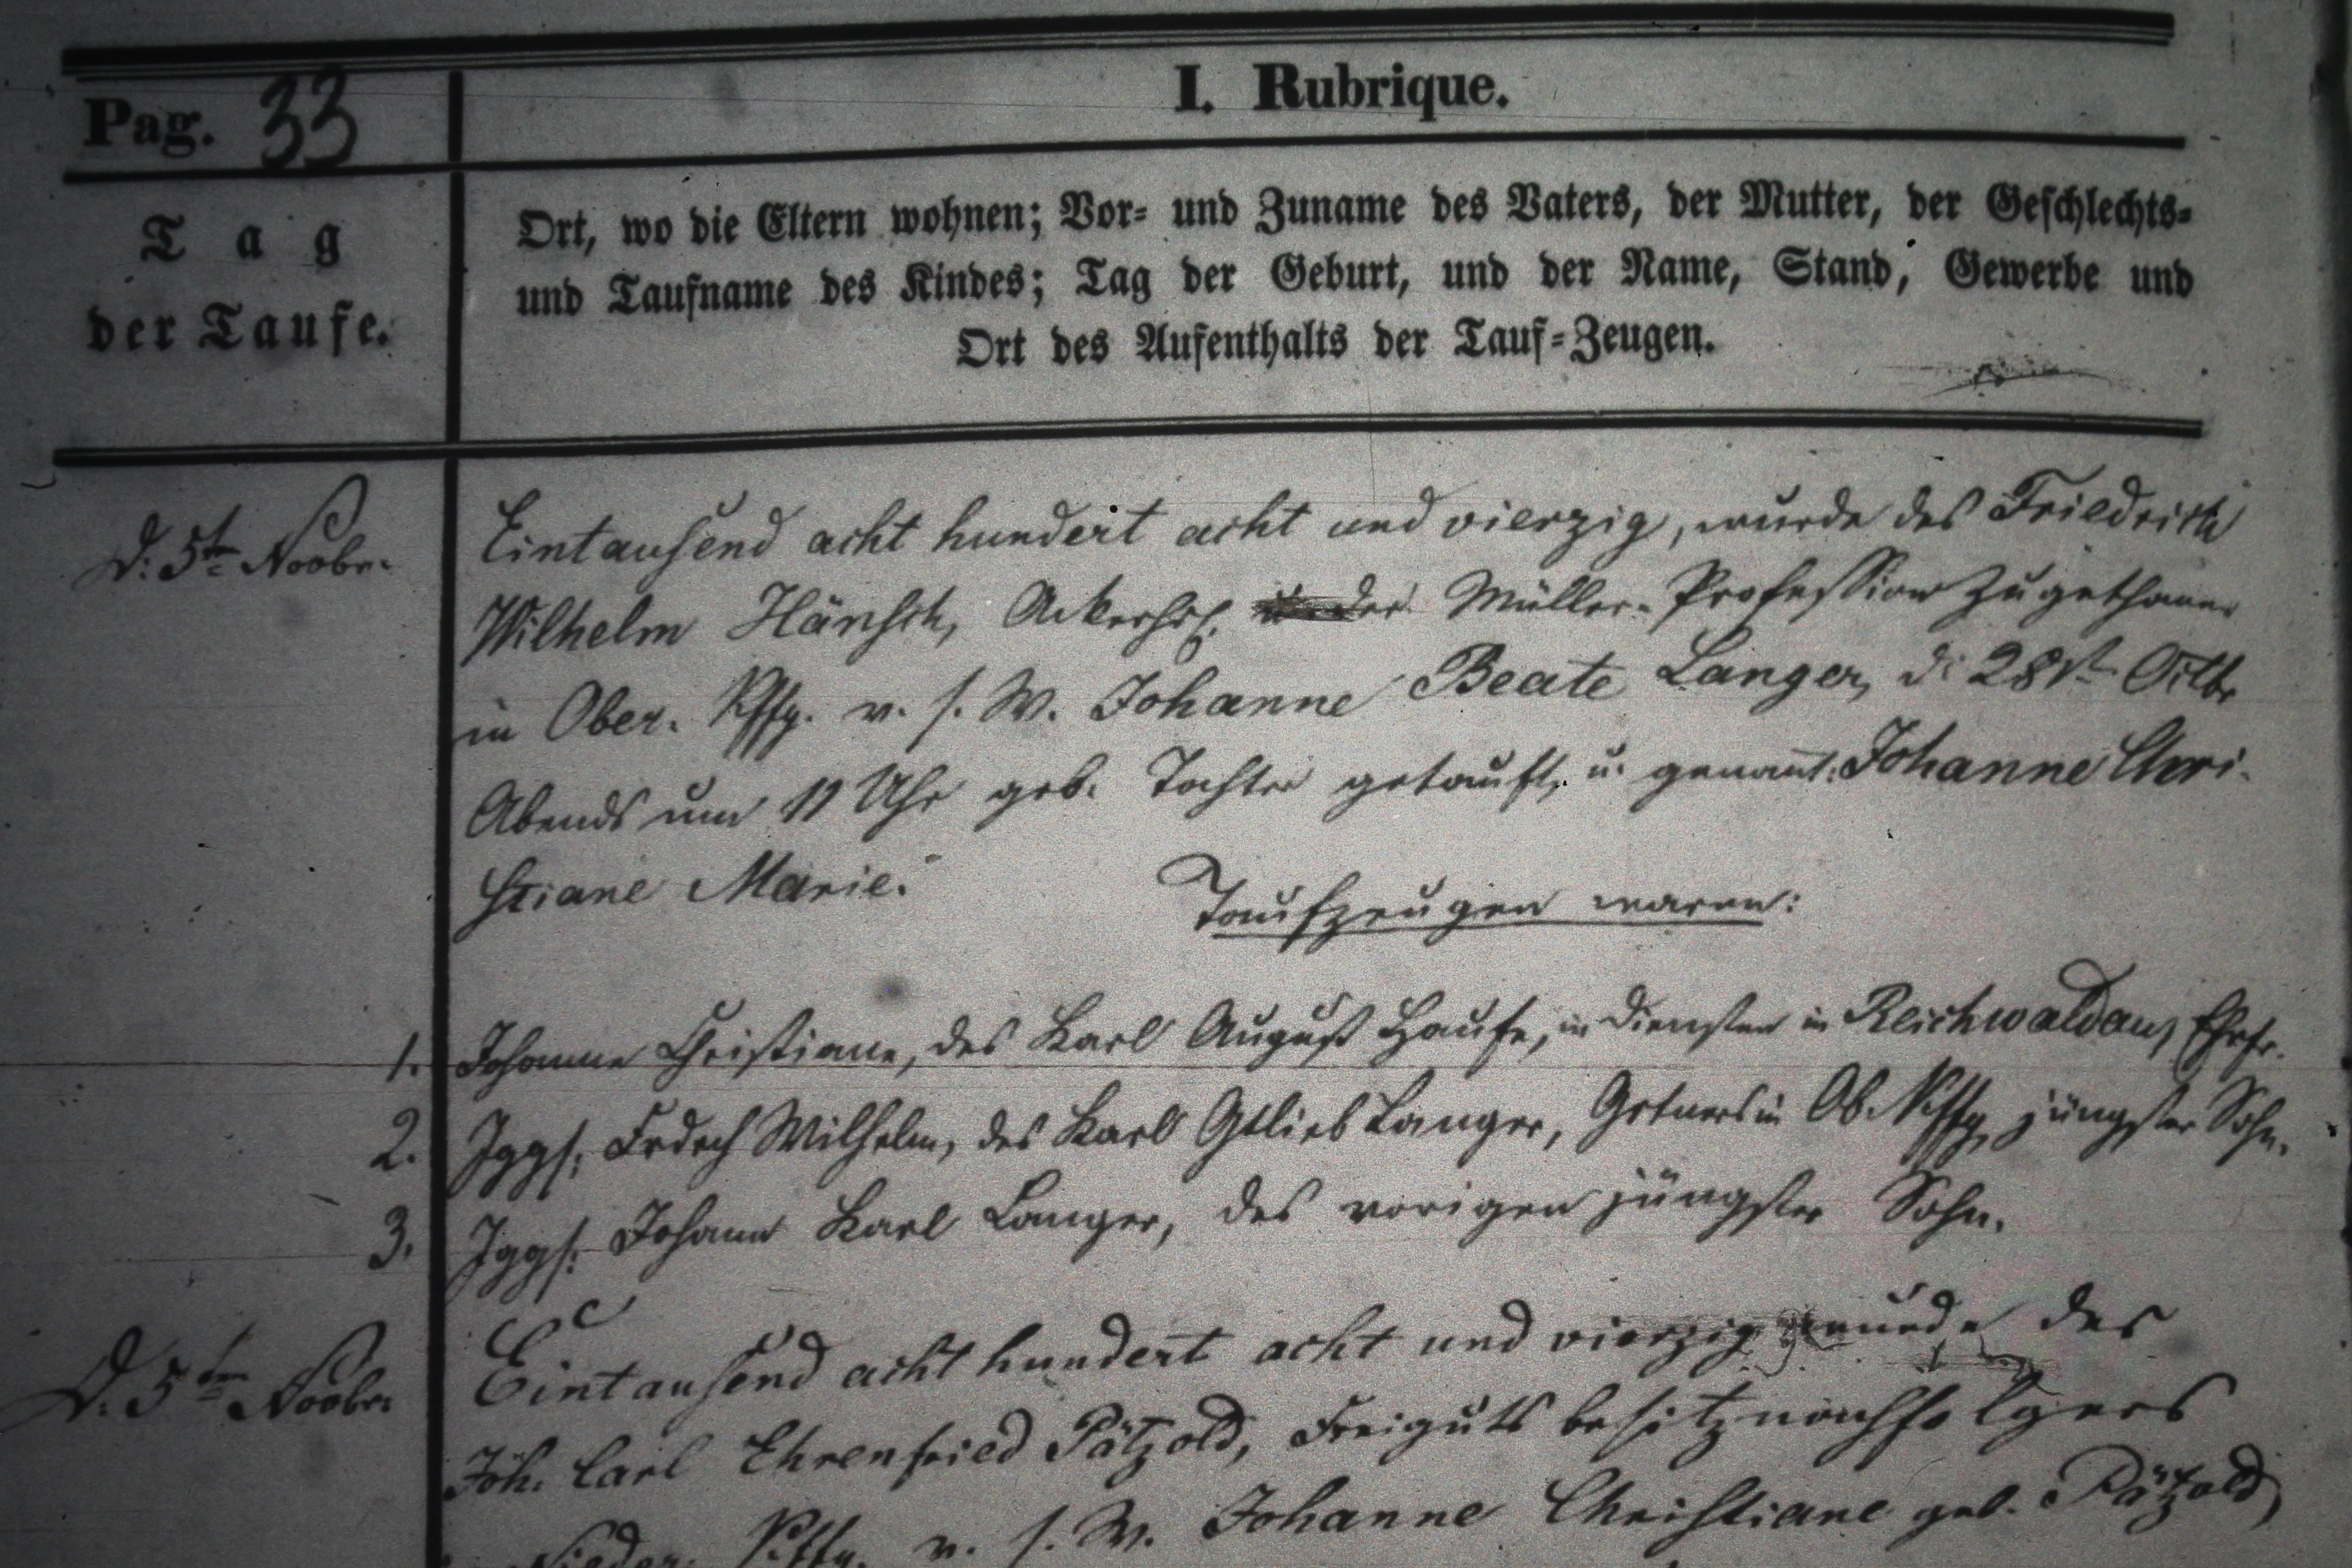 Pag. 33
I. Rubrique.
Tag
der Taufe.
Ort, wo die Eltern wohnen; Vor- und Zuname des Vaters, der Mutter, der Geschlechts-
und Taufname des Kindes; Tag der Geburt, und der Name, Stand, Gewerbe und
Ort des Aufenthalts der Tauf-Zeugen.
D. 5te Novbr.
Eintausend acht hundert acht und vierzig, wurde des Friedrich
Wilhelm Hänsch, der Müller-Profession zugethaner
in Ober. v. s. W. Johanne Beate Langer, d. 28st Octbr
Abends um 11 Uhr geb. Tochter getauft, u. genannt: Johanne Chri-
stiane Marie.
Taufzeugen waren:
1. Johanne Christiane, des Karl August Haufe, in Diensten in Reichwaldau, Ehefr.
2. Jggs. Frdrch Wilhelm, des Karl Gtlieb Langer, Grtners in Ob. jüngster Sohn.
3. Jggs. Johann Karl Langer, des vorigen jüngster Sohn.
D. 5ten Novbr.
Eintausend acht hundert acht und vierzig wurde des
Joh. Carl Ehrenfried Pätzold, Freigutsbesitznachfolgers
Nieder. v. s. W. Johanne Christiane geb. Pätzold,